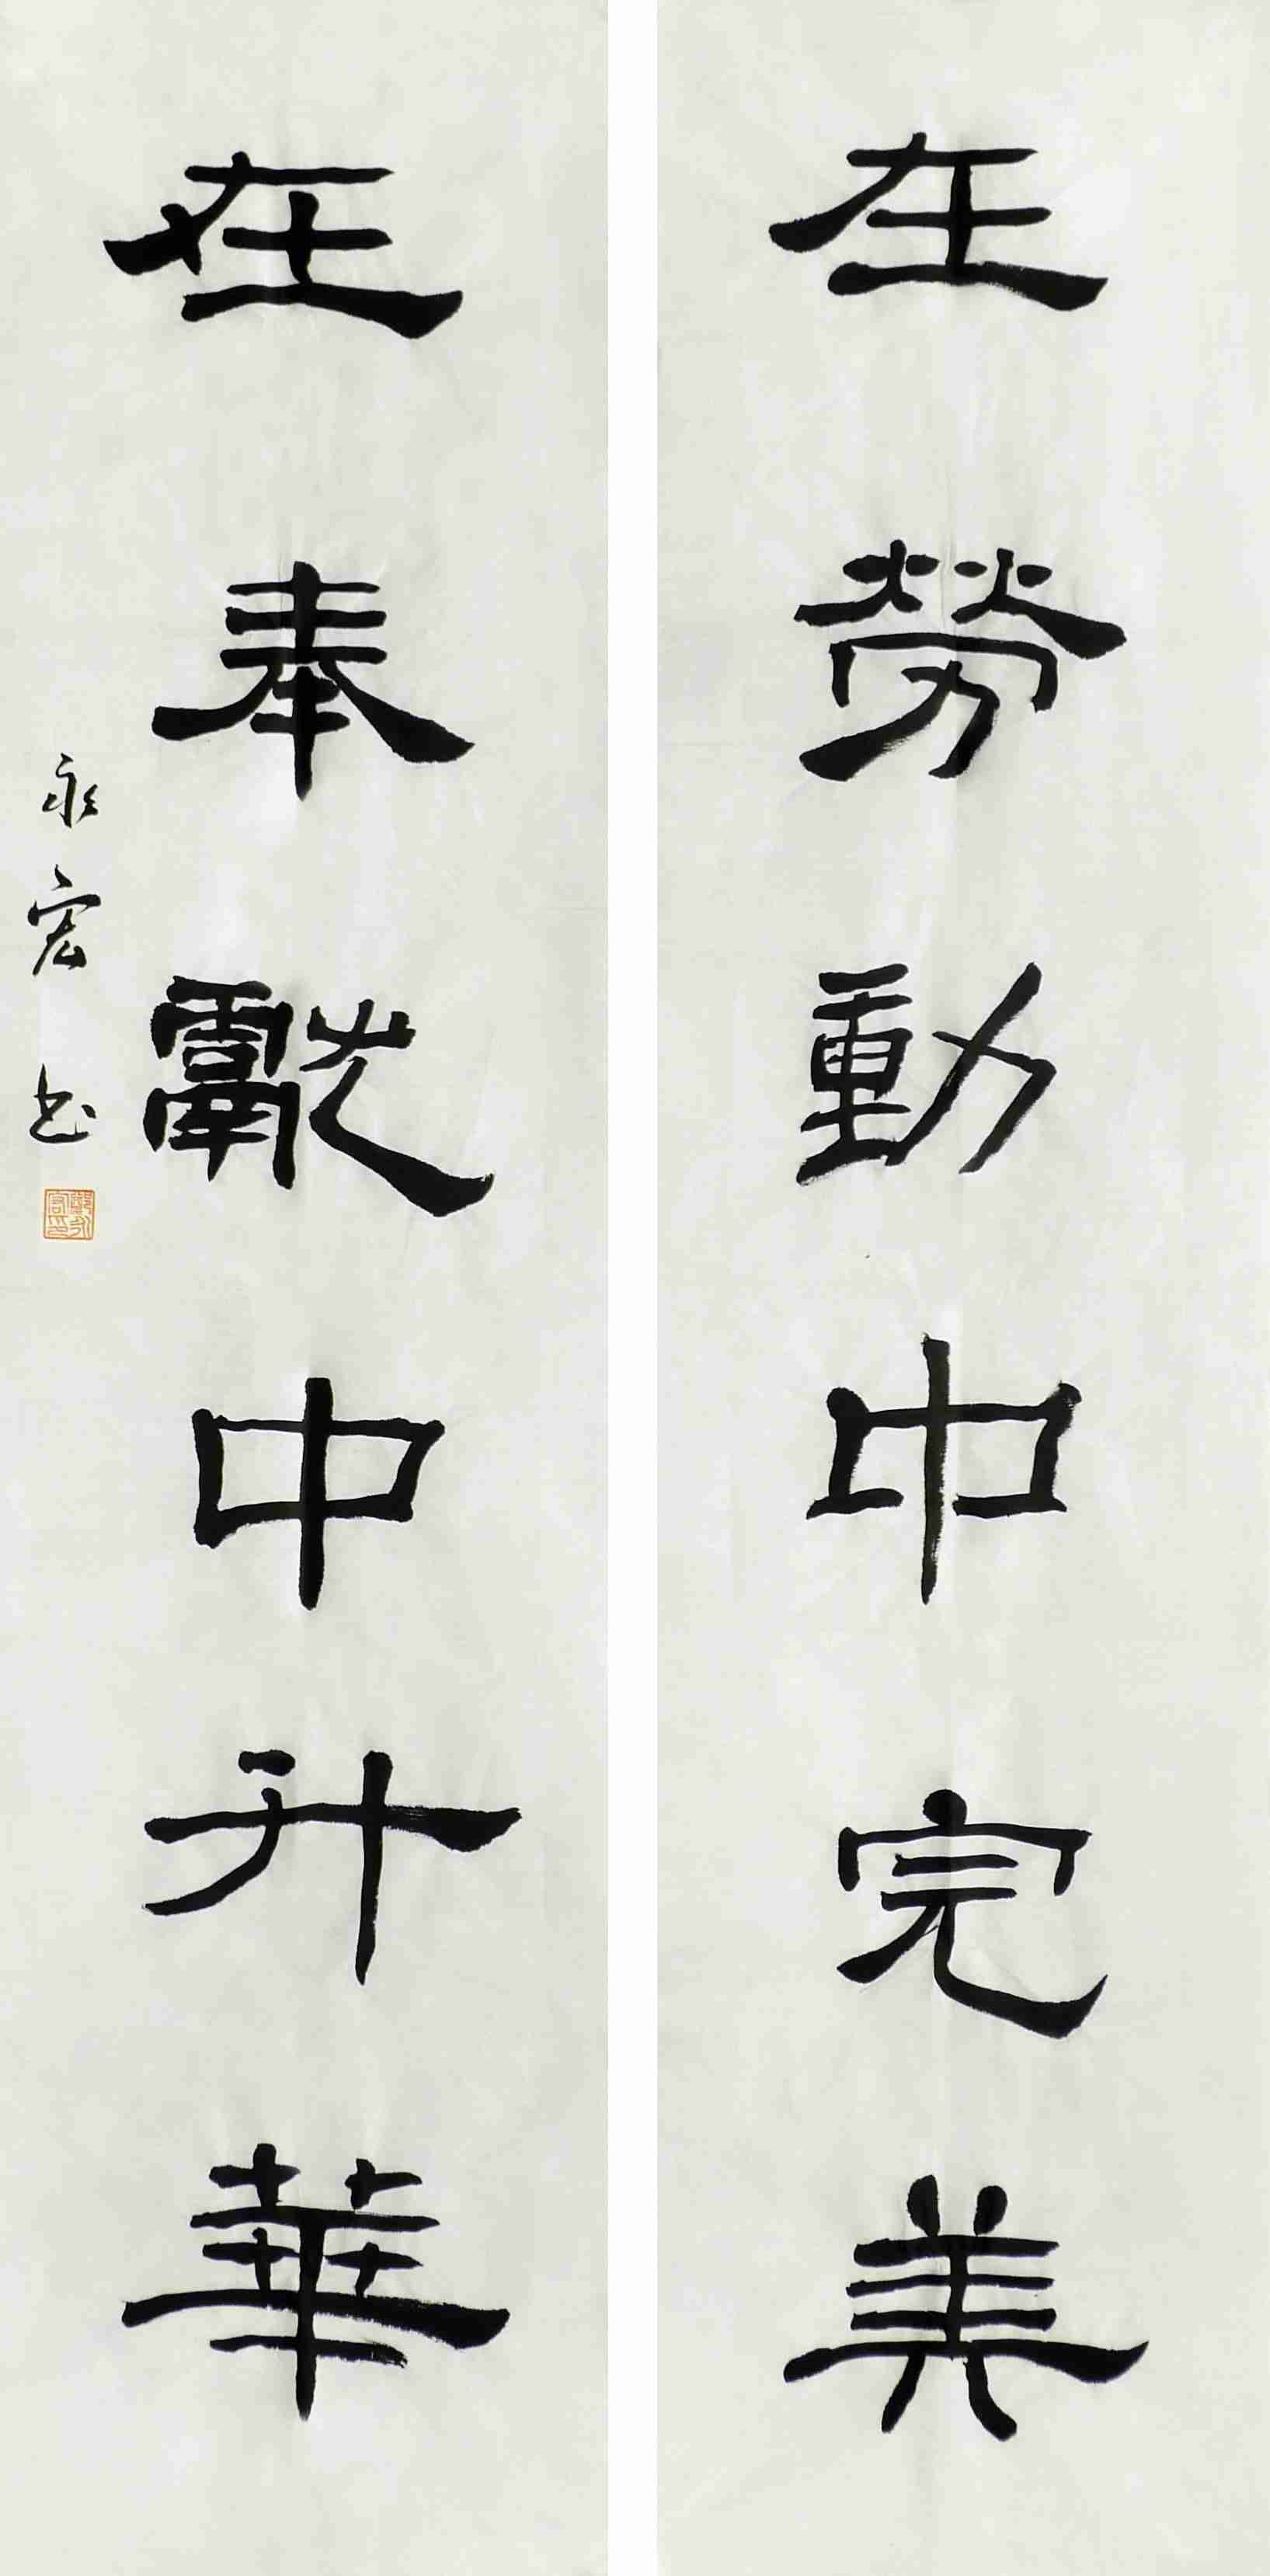 在勞動中完美
在奉獻中升華
永宏书